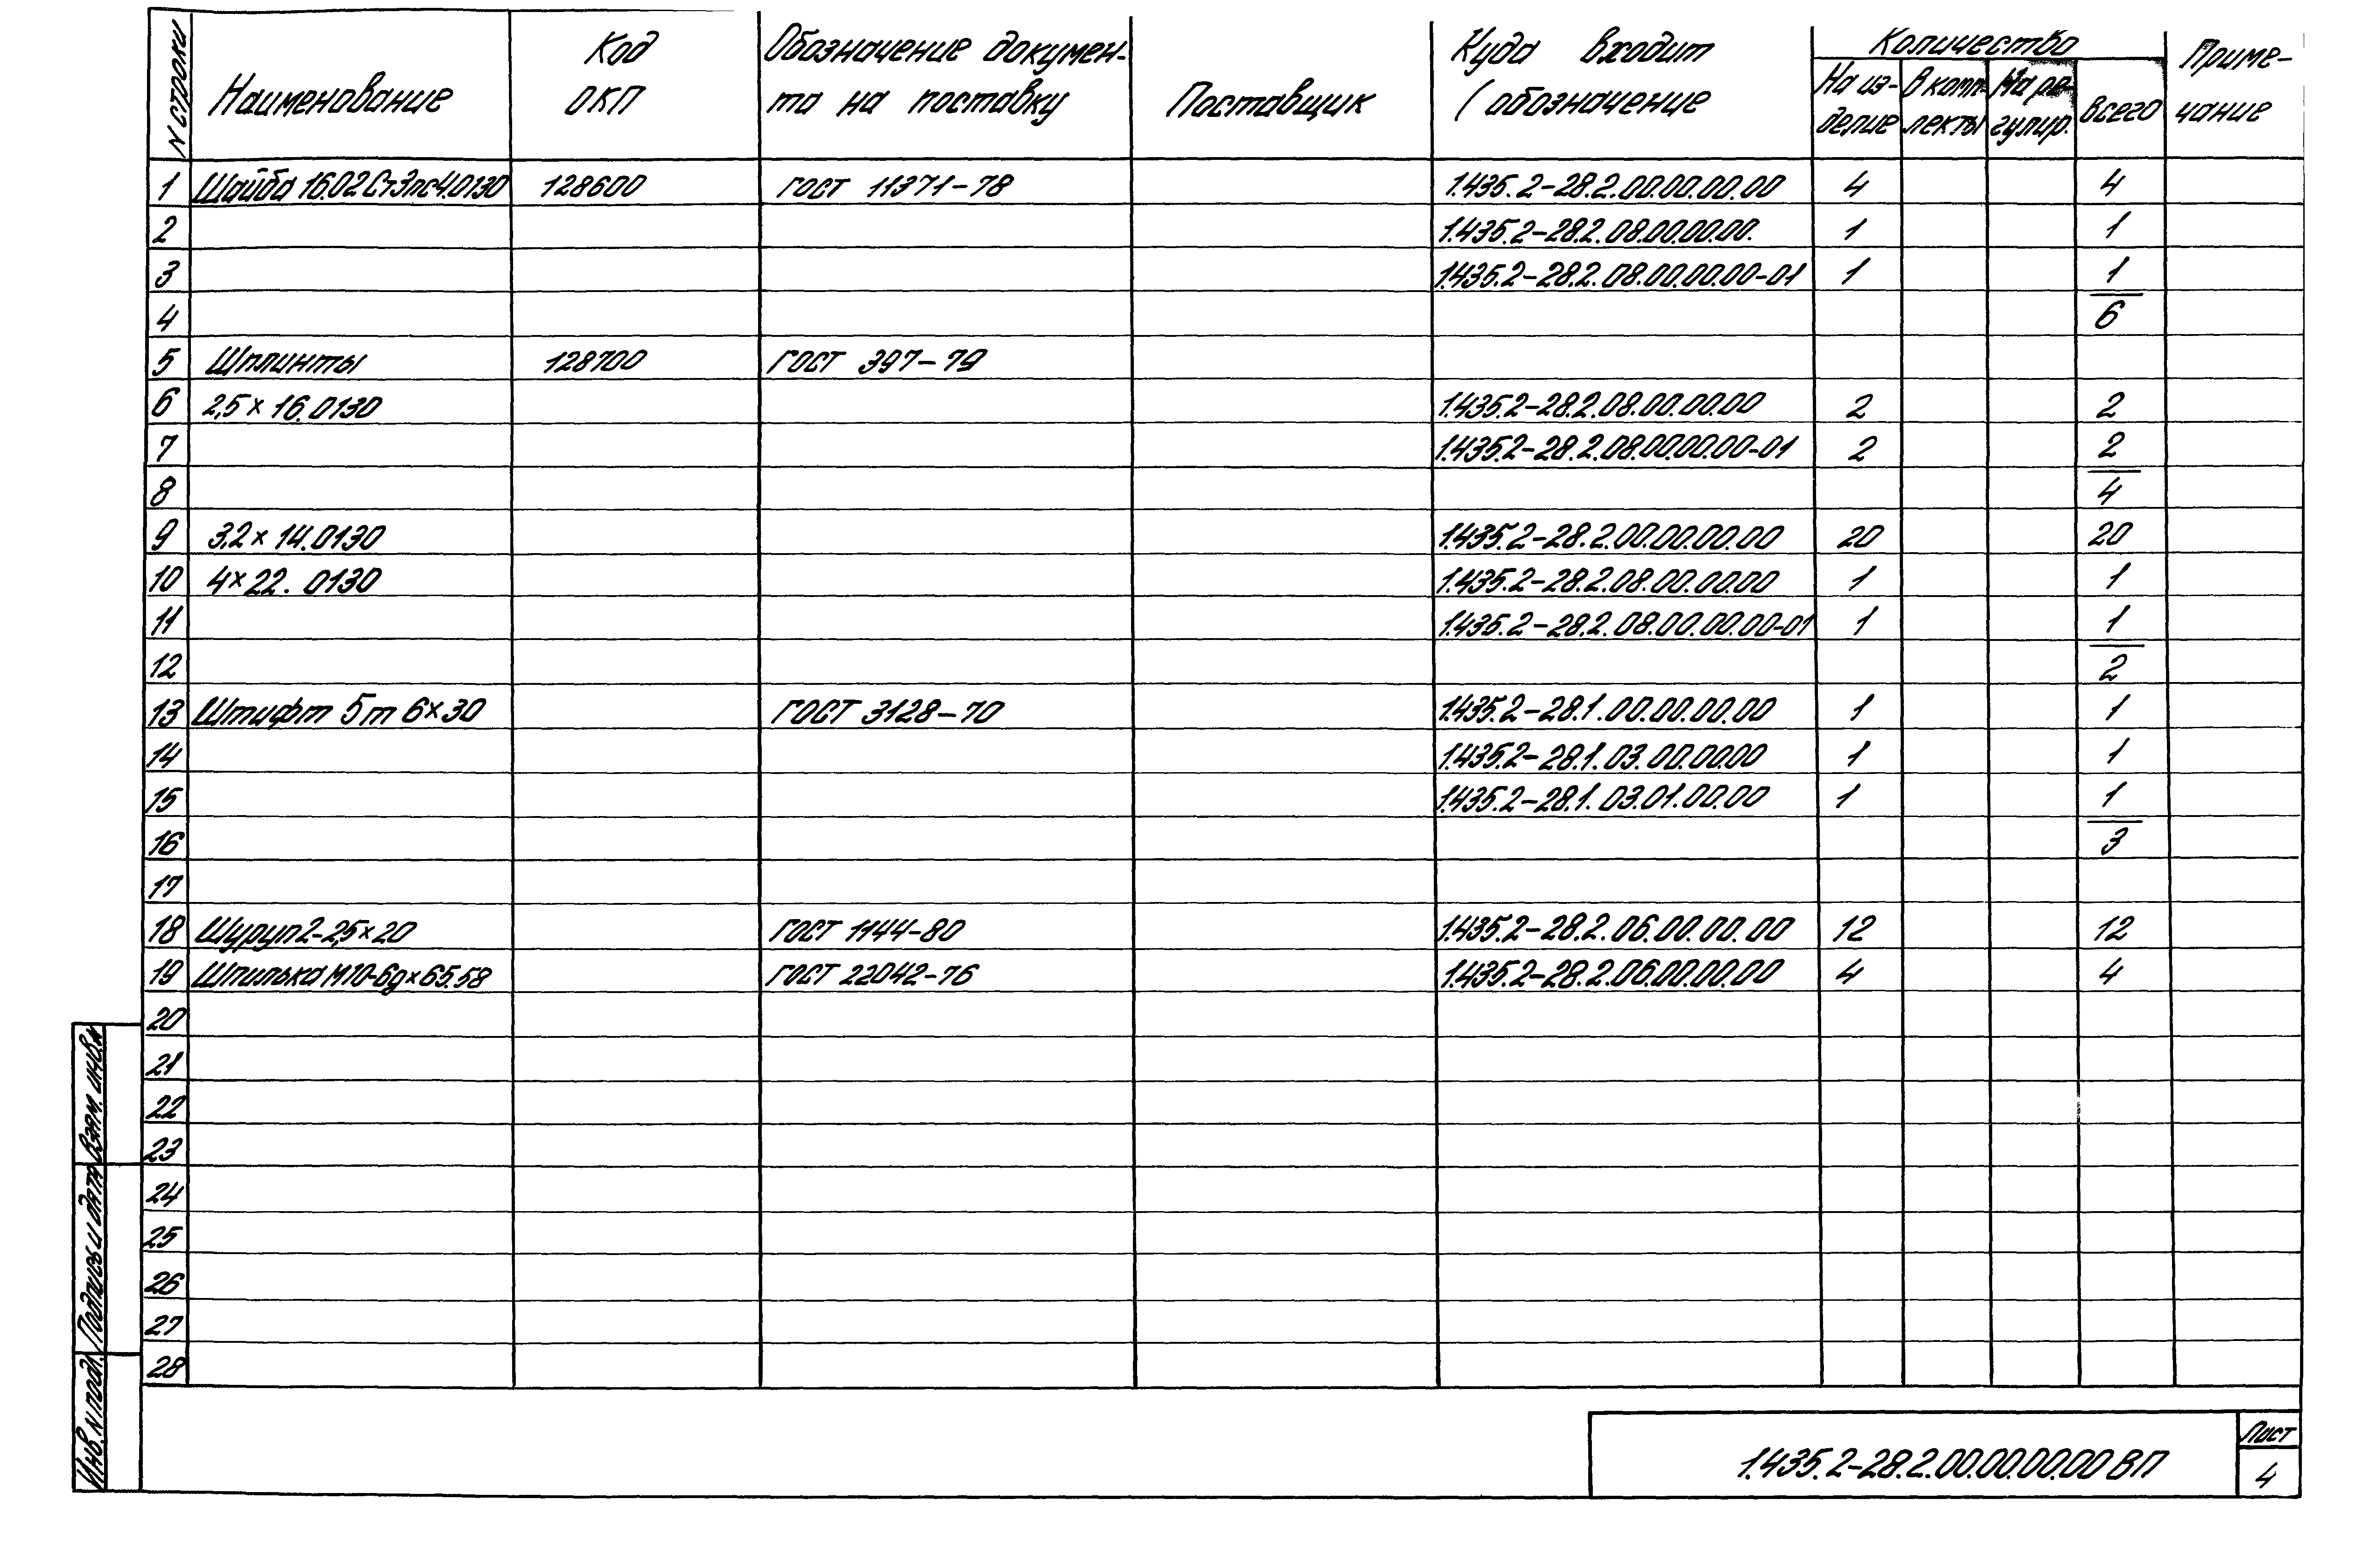 N строки Наименование Код ОКП Обозначение докумен-та на поставку Поставщик Куда входит (обозначение Количество На из-делие В комп-лекты На ре-гулир. Всего Приме-чание
1 Шайба 16.02 Ст3пс4.0130 128600 ГОСТ 11371-78 1.435.2-28.2.00.00.00.00 4 4
2 1.435.2-28.2.08.00.00.00. 1 1
3 1.435.2-28.2.08.00.00.00-01 1 1
4 6
5 Шплинты 128700 ГОСТ 397-79
6 2,5×16.0130 1.435.2-28.2.08.00.00.00 2 2
7 1.435.2-28.2.08.00.00.00-01 2 2
8 4
9 3.2×14.0130 1.435.2-28.2.00.00.00.00 20 20
10 4×22.0130 1.435.2-28.2.08.00.00.00 1 1
11 1.435.2-28.2.08.00.00.00-01 1 1
12 2
13 Штифт 5т 6×30 ГОСТ 3128-70 1.435.2-28.1.00.00.00.00 1 1
14 1.435.2-28.1.03.00.00.00 1 1
15 1.435.2-28.1.03.01.00.00 1 1
16 3
17
18 Шуруп 2-2,5×20 ГОСТ 1144-80 1.435.2-28.2.06.00.00.00 12 12
19 Шпилька М10-6g×65.58 ГОСТ 22042-76 1.435.2-28.2.06.00.00.00 4 4
20
21
22
23
24
25
26
27
28
Взам. инв. N
Подпись и дата
Инв. N подл.
1.435.2-28.2.00.00.00.00 ВП
Лист
4